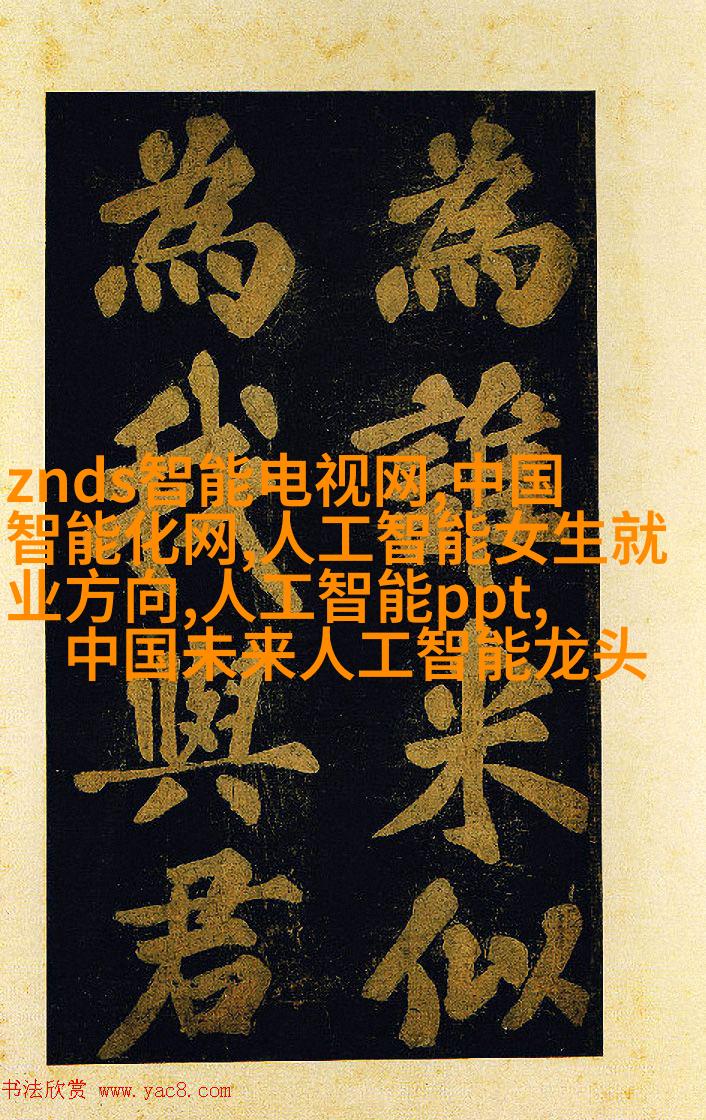 為誰来似
為我與君
znds智能电视网,中国
智能化网,人工智能女生就
业方向,人工智能ppt,
中国未来人工智能龙头
书法欣赏 www.yac8.com